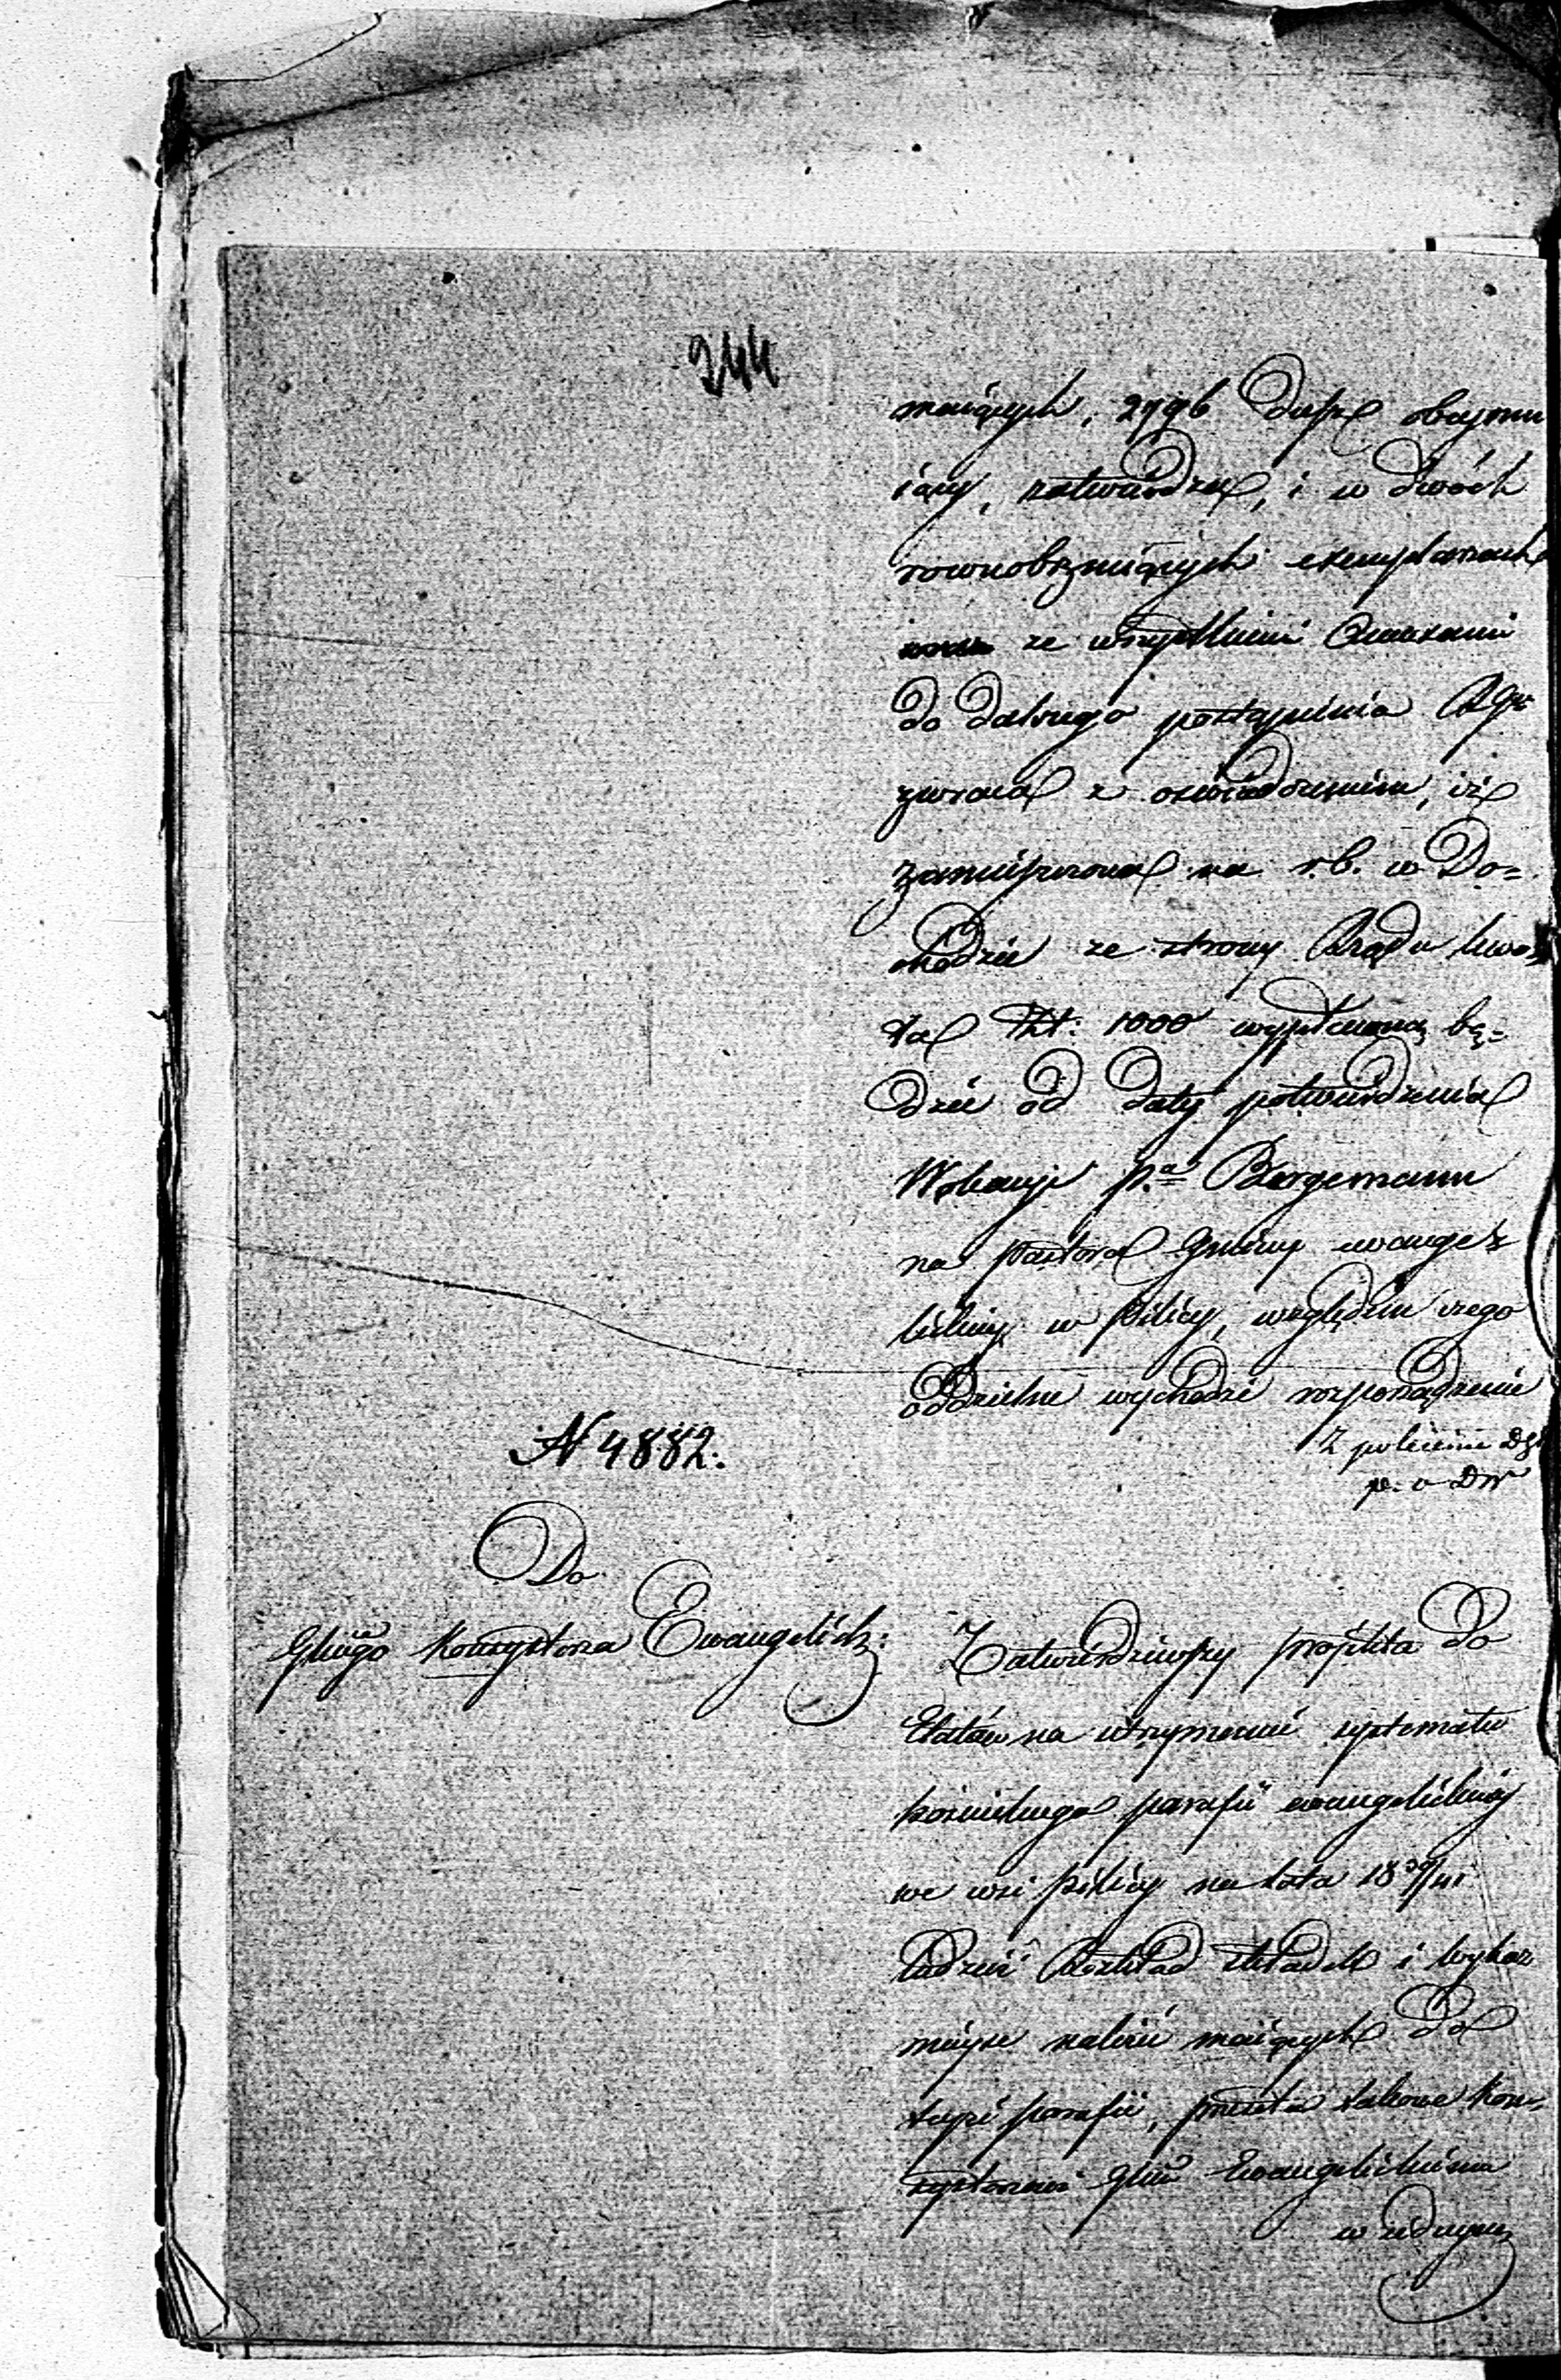 244
maiących, 2796 dusz obeymu
iący, zatwierdza, i w dwóch
rownobrzmiących exemplarzach
ze wszystkiemi Annexami
do dalszego postąpienia RGu
zwraca z oświadczeniem, iż
zamieszczona na r.b. w Do=
chodzie ze strony Rządu kwo
ta Złt: 1000 wypłaconą bę=
dzie od daty potwierdzenia
Wokacyi p.a Bergemann
na pastora Gminy ewange
lickiey w Pilicy, względem czego
oddzielne wychodzi rozporządzenie
Z polecenia
p. o DW
N 4882.
Do
Głnego Konsystorza Ewangelick:
Zatwierdziwszy projekta do
Etatów na utrzymanie systematu
kościelnego parafii ewangelickiey
we wsi Pilicy na lata 18 39/41
tudzież Rozkład składek i wykaz
mieysc należeć maiących do
teyże parafii, przesyła takowe Kon=
systorzowi Głmu Ewangelickiemu
w iednym